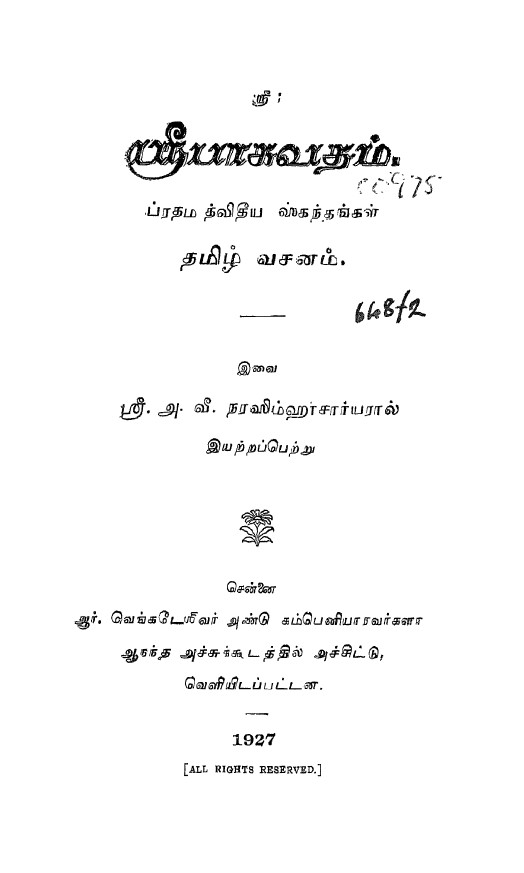 ஸ்ரீ :
ஸ்ரீபாகவதம்.
00975
ப்ரதம த்விதீய ஸ்கந்தங்கள்
தமிழ் வசனம்.
648/2
இவை
ஸ்ரீ. அ. வீ. நரஸிம்ஹாசார்யரால்
இயற்றப்பெற்று
சென்னை
ஆர். வெங்கடேஸ்வர் அண்டு கம்பெனியாரவர்களா
ஆநந்த அச்சுக்கூடத்தில் அச்சிட்டு,
வெளியிடப்பட்டன.
1927
[ALL RIGHTS RESERVED.]